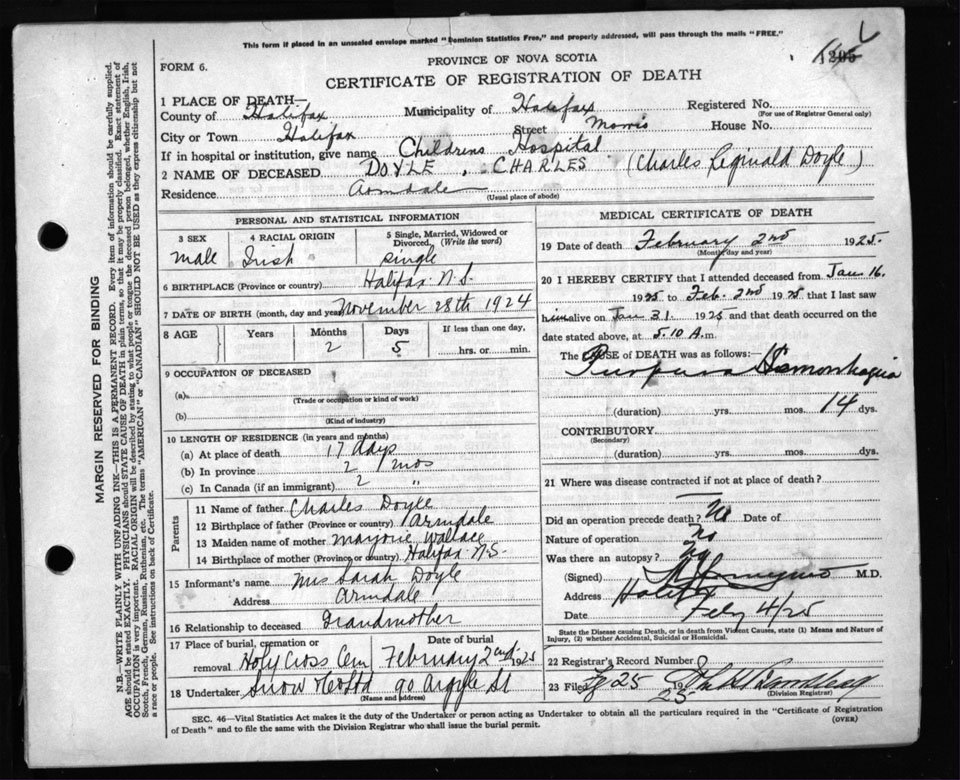 This form if placed in an unsealed envelope marked "Dominion Statistics Free," and properly addressed, will pass through the mails "FREE."
FORM 6.
PROVINCE OF NOVA SCOTIA
1295
CERTIFICATE OF REGISTRATION OF DEATH
1 PLACE OF DEATH—
County of Halifax Municipality of Halifax Registered No.
(For use of Registrar General only)
City or Town Halifax Street Morris House No.
If in hospital or institution, give name Childrens Hospital
2 NAME OF DECEASED DOYLE, CHARLES (Charles Reginald Doyle)
Residence Armdale
(Usual place of abode)
PERSONAL AND STATISTICAL INFORMATION
3 SEX 4 RACIAL ORIGIN 5 Single, Married, Widowed or Divorced, (Write the word)
male Irish single
6 BIRTHPLACE (Province or country) Halifax N.S.
7 DATE OF BIRTH (month, day and year) November 28th 1924
8 AGE Years Months Days If less than one day,
2 5 hrs. or min.
9 OCCUPATION OF DECEASED
(a)
(Trade or occupation or kind of work)
(b)
(Kind of industry)
10 LENGTH OF RESIDENCE (in years and months)
(a) At place of death 17 days
(b) In province 2 mos
(c) In Canada (if an immigrant) 2 "
Parents
11 Name of father Charles Doyle
12 Birthplace of father (Province or country) Armdale
13 Maiden name of mother Marjorie Wallace
14 Birthplace of mother (Province or country) Halifax N.S.
15 Informant's name Mrs Sarah Doyle
Address Armdale
16 Relationship to deceased Grandmother
17 Place of burial, cremation or removal Date of burial
Holy Cross Cem February 2nd 1925
18 Undertaker Snow & Co Ltd 90 Argyle St
(Name and address)
MEDICAL CERTIFICATE OF DEATH
19 Date of death February 2nd 1925.
(Month, day and year)
20 I HEREBY CERTIFY that I attended deceased from Jan 16.
1925 to Feb. 2nd 1925 that I last saw
him alive on Jan 31 1925 and that death occurred on the
date stated above, at 5.10 A.m.
The CAUSE of DEATH was as follows:
Purpura Hemorrhagica
(duration) yrs. mos. 14 dys.
CONTRIBUTORY
(Secondary)
(duration) yrs. mos. dys.
21 Where was disease contracted if not at place of death?
Did an operation precede death? No Date of
Nature of operation no
Was there an autopsy? no
(Signed) M.D.
Address Halifax
Date Feby 4/25
State the Disease causing Death, or in death from Violent Causes, state (1) Means and Nature of
Injury, (2) whether Accidental, Suicidal or Homicidal.
22 Registrar's Record Number
23 Filed 25 19 25
(Division Registrar)
SEC. 46—Vital Statistics Act makes it the duty of the Undertaker or person acting as Undertaker to obtain all the particulars required in the "Certificate of Registration
of Death" and to file the same with the Division Registrar who shall issue the burial permit.
(OVER)
MARGIN RESERVED FOR BINDING
N.B.—WRITE PLAINLY WITH UNFADING INK—THIS IS A PERMANENT RECORD. Every item of information should be carefully supplied.
AGE should be stated EXACTLY. PHYSICIANS should STATE CAUSE OF DEATH in plain terms, so that it may be properly classified. Exact statement of
OCCUPATION is very important. RACIAL ORIGIN will be described by stating to what people or tongue the deceased person belonged, whether English, Irish,
Scotch, French, German, Russian, Ruthenian, etc. The terms "AMERICAN" or "CANADIAN" SHOULD NOT BE USED as they express citizenship but not
a race or people. See instructions on back of Certificate.